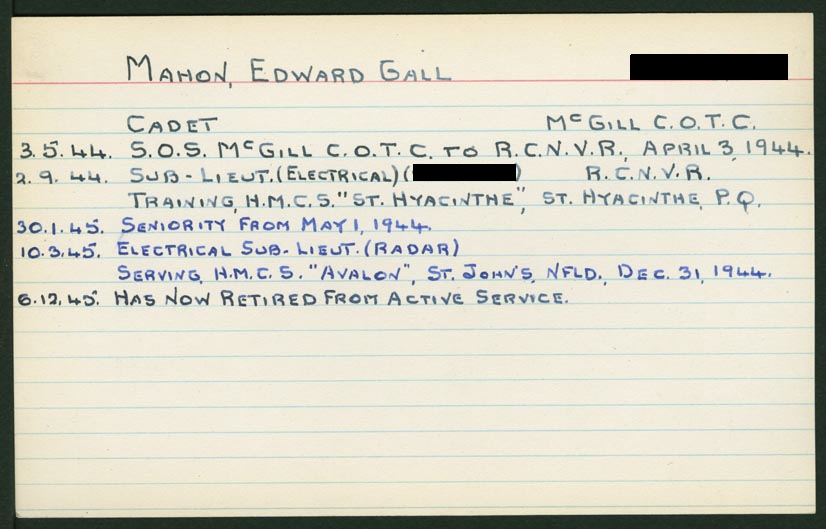 MAHON, EDWARD GALL
CADET McGILL C.O.T.C.
3.5.44. S.O.S. McGILL C.O.T.C. TO R.C.N.V.R., APRIL 3, 1944.
2.9.44. SUB-LIEUT. (ELECTRICAL) ( ) R.C.N.V.R.
TRAINING, H.M.C.S. "ST. HYACINTHE", ST. HYACINTHE, P.Q.
30.1.45. SENIORITY FROM MAY 1, 1944.
10.3.45. ELECTRICAL SUB-LIEUT. (RADAR)
SERVING, H.M.C.S. "AVALON", ST. JOHN'S, NFLD., DEC. 31, 1944.
6.12.45. HAS NOW RETIRED FROM ACTIVE SERVICE.